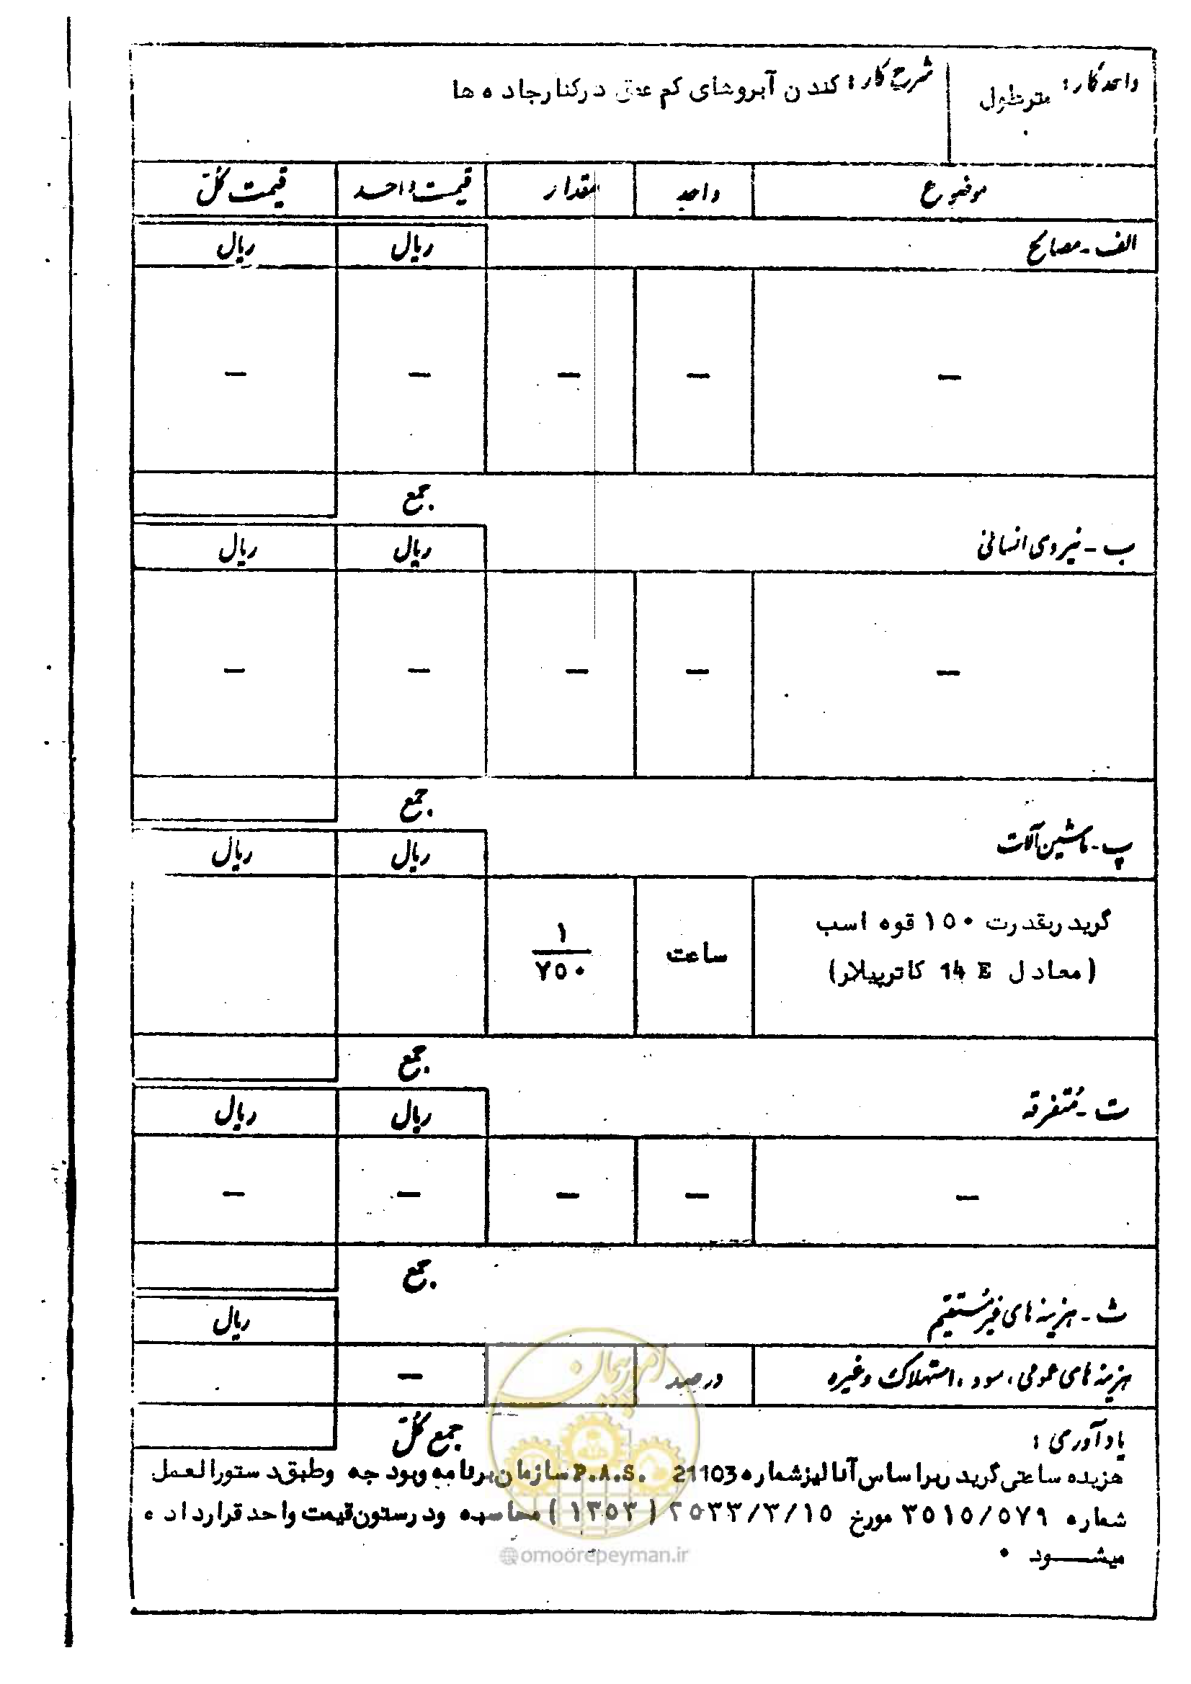 واحد کار : مترطول
شرح کار : کندن آبروهای کم عمق درکنارجاده ها
موضوع واحد مقدار قیمت واحد قیمت کل
الف - مصالح ریال ریال
— — — — —
جمع
ب - نیروی انسانی ریال ریال
— — — — —
جمع
پ - ماشین آلات ریال ریال
گریدربقدرت ۱۵۰ قوه اسب
(معادل 14 E کاترپیلار) ساعت ۱/۷۵۰
جمع
ت - متفرقه ریال ریال
— — — — —
جمع
ث - هزینه های غیرمستقیم ریال
هزینه های عمومی ، سود ، استهلاک وغیره درصد —
جمع کل
یادآوری :
هزینه ساعتی گریدربراساس آنالیزشماره 21103 P.A.S. سازمان برنامه وبودجه وطبق دستورالعمل
شماره ۳۵۱۵/۵۷۹ مورخ ۲۵۳۳/۳/۱۵ (۱۳۵۳) محاسبه ودرستون قیمت واحد قرارداده
میشود .
امور پیمان
@omoorepeyman.ir